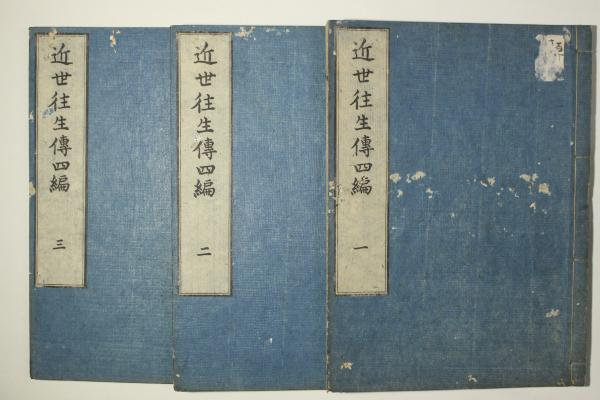 近世往生傳四編 一
近世往生傳四編 二
近世往生傳四編 三